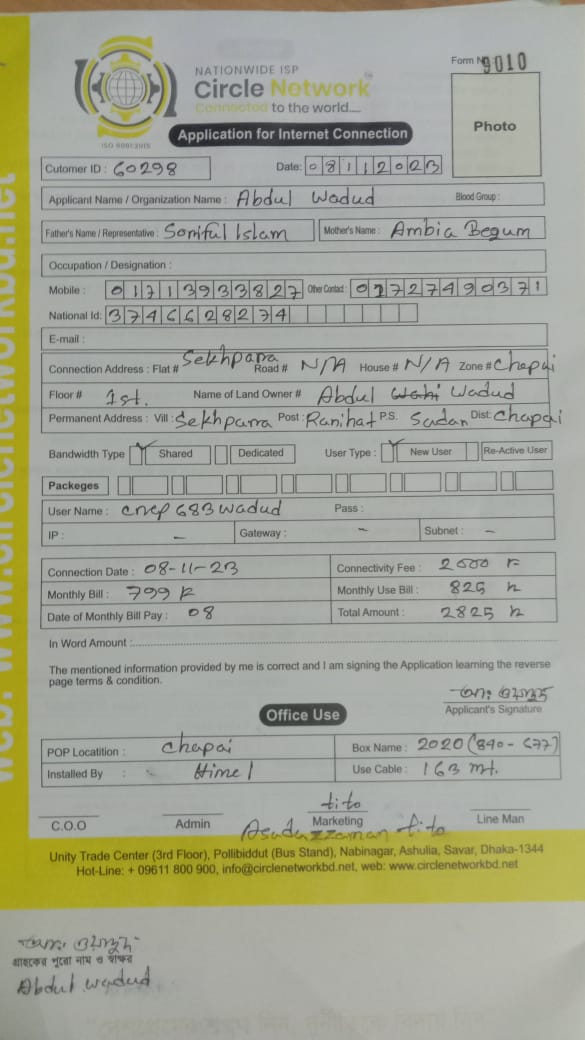 NATIONWIDE ISP
Circle Network
Connected to the world....
ISO 9001:2015
Form No 9010
Photo
Application for Internet Connection
Cutomer ID : 60298 Date: 08112023
Applicant Name / Organization Name : Abdul Wadud Blood Group :
Father's Name / Representative : Soriful Islam Mother's Name : Ambia Begum
Occupation / Designation :
Mobile : 01713933827 Other Contact : 01727490371
National Id: 3746628274
E-mail :
Connection Address : Flat # Sekhparra Road # N/A House # N/A Zone # Chapai
Floor # 1st. Name of Land Owner # Abdul Wadud
Permanent Address : Vill : Sekhparra Post : Ranihat P.S. Sadar Dist: Chapai
Bandwidth Type Shared Dedicated User Type : New User Re-Active User
Packeges
User Name : cncp683wadud Pass :
IP : – Gateway : – Subnet : –
Connection Date : 08-11-23 Connectivity Fee : 2000
Monthly Bill : 799 Monthly Use Bill : 825
Date of Monthly Bill Pay : 08 Total Amount : 2825
In Word Amount :
The mentioned information provided by me is correct and I am signing the Application learning the reverse
page terms & condition.
Applicant's Signature
Office Use
POP Locatition : Chapai Box Name : 2020 (840-677)
Installed By : Himel Use Cable : 163 mt.
tito
C.O.O Admin Marketing Line Man
Asaduzzaman tito
Unity Trade Center (3rd Floor), Pollibiddut (Bus Stand), Nabinagar, Ashulia, Savar, Dhaka-1344
Hot-Line: + 09611 800 900, info@circlenetworkbd.net, web: www.circlenetworkbd.net
web: www.circlenetworkbd.net
গ্রাহকের পুরো নাম ও স্বাক্ষর
Abdul wadud